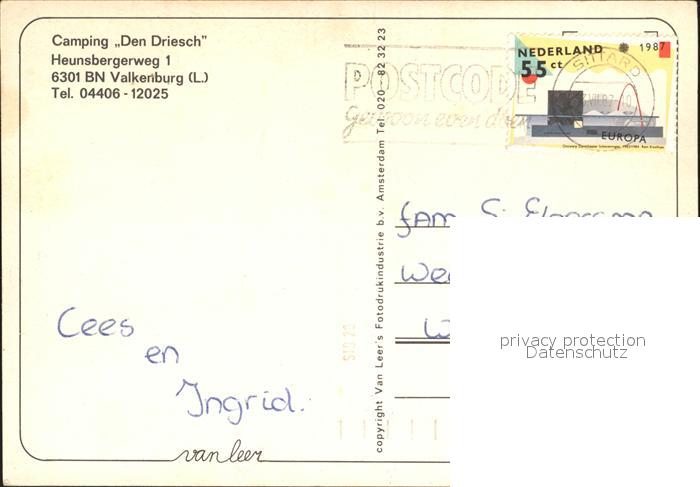 Camping „Den Driesch”
Heunsbergerweg 1
6301 BN Valkenburg (L.)
Tel. 04406 - 12025
POSTCODE
gewoon even doen
NEDERLAND
55 ct
1987
EUROPA
SITTARD
copyright Van Leer's Fotodrukindustrie b.v. Amsterdam Tel. 020 - 82 32 23
fam S.
Cees
en
Ingrid.
van leer
privacy protection
Datenschutz